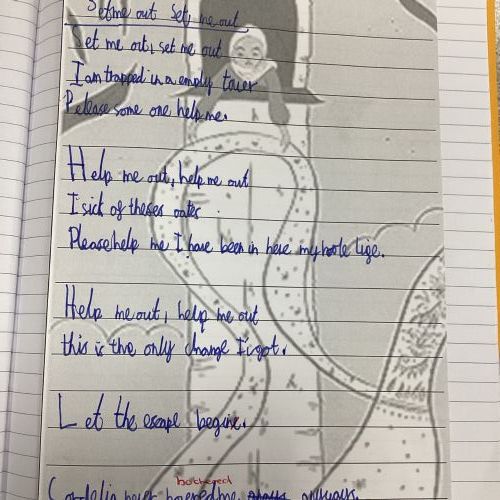 Set me out Set, me out
Set me out, set me out
I am trapped in a empty tawer
Please some one help me.
Help me out, help me out
I sick of theses oates
Please help me I have been in here my hole lige.
Help me out, help me out
this is the only change I'v got.
Let the escape begine.
bothered
never me anyways.